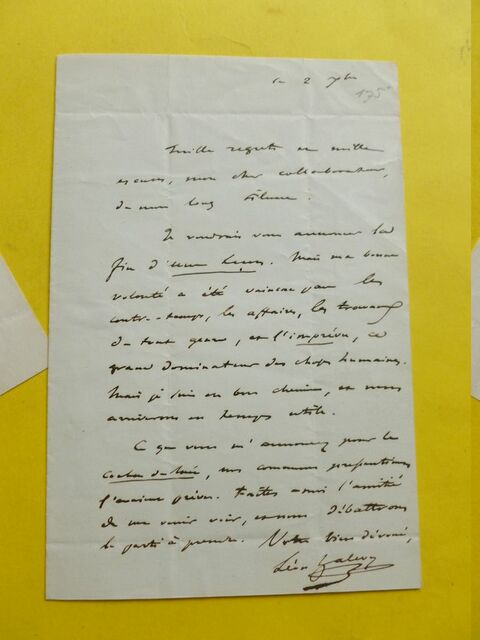 le 2 7bre
175
Mille regrets et mille
excuses, mon cher collaborateur,
de mon long silence.
Je voudrais vous annoncer la
fin d'une
volonté a été vaincue par les
contre-temps, les affaires, les travaux
de tout genre, et l'imprévu, ce
grand dominateur des choses humaines.
Mais je suis en bon chemin, et nous
arriverons en temps utile.
Ce que vous m'annoncez pour le
nos communes prépositions
l'avaient prévu. Faites moi l'amitié
de me venir voir, et nous débattrons
le parti à prendre. Votre bien dévoué,
Léon Halevy